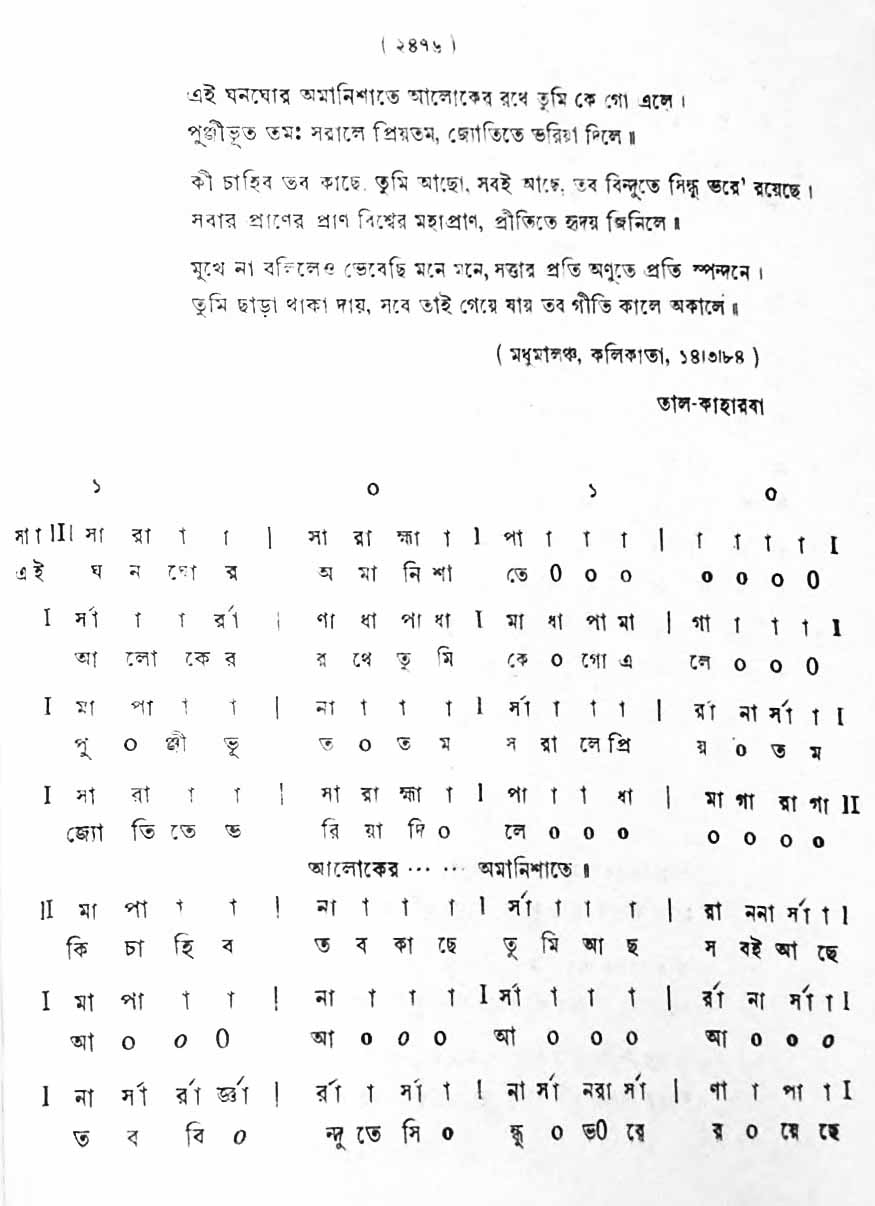 ( ২৪৭৬ )
এই ঘনঘোর অমানিশাতে আলোকের রথে তুমি কে গো এলে ।
পুঞ্জীভূত তমঃ সরালে প্রিয়তম, জ্যোতিতে ভরিয়া দিলে ॥
কী চাহিব তব কাছে, তুমি আছো, সবই আছে, তব বিন্দুতে সিন্ধু ভরে' রয়েছে ।
সবার প্রাণের প্রাণ বিশ্বের মহাপ্রাণ, প্রীতিতে হৃদয় জিনিলে ॥
মুখে না বলিলেও ভেবেছি মনে মনে, সত্তার প্রতি অণুতে প্রতি স্পন্দনে ।
তুমি ছাড়া থাকা দায়, সবে তাই গেয়ে যায় তব গীতি কালে অকালে ॥
( মধুমালঞ্চ, কলিকাতা, ১৪।৩।৮৪ )
তাল-কাহারবা
১ ০ ১ ০
সা া III সা রা া া | সা রা হ্মা া I পা া া া | া া া া I
এই ঘ ন ঘো র অ মা নি শা তে 0 ০ ০ ০ ০ ০ 0
I র্সা া া র্রা | ণা ধা পা ধা I মা ধা পা মা | গা া া া I
আ লো কে র র থে তু মি কে ০ গো এ লে ০ ০ 0
I মা পা া া | না া া া I র্সা া া া | র্রা না র্সা া I
পু ০ ঞ্জী ভূ ত ০ ত ম স রা লে প্রি য় ০ ত ম
I সা রা া া | সা রা হ্মা া I পা া া ধা | মা গা রা গা II
জ্যো তি তে ভ রি য়া দি ০ লে ০ ০ ০ ০ ০ ০ ০
আলোকের ... ... অমানিশাতে ॥
II মা পা া া | না া া া I র্সা া া া | রা ননা র্সা া I
কি চা হি ব ত ব কা ছে তু মি আ ছ স বই আ ছে
I মা পা া া | না া া া I র্সা া া া | র্রা না র্সা া I
আ ০ ০ 0 আ ০ ০ ০ আ ০ ০ ০ আ ০ ০ ০
I না র্সা র্রা র্জ্ঞা | র্রা া র্সা া I না র্সা নরা র্সা | ণা া পা া I
ত ব বি ০ ন্দু তে সি ০ ন্ধু ০ ভ0 রে র ০ য়ে ছে